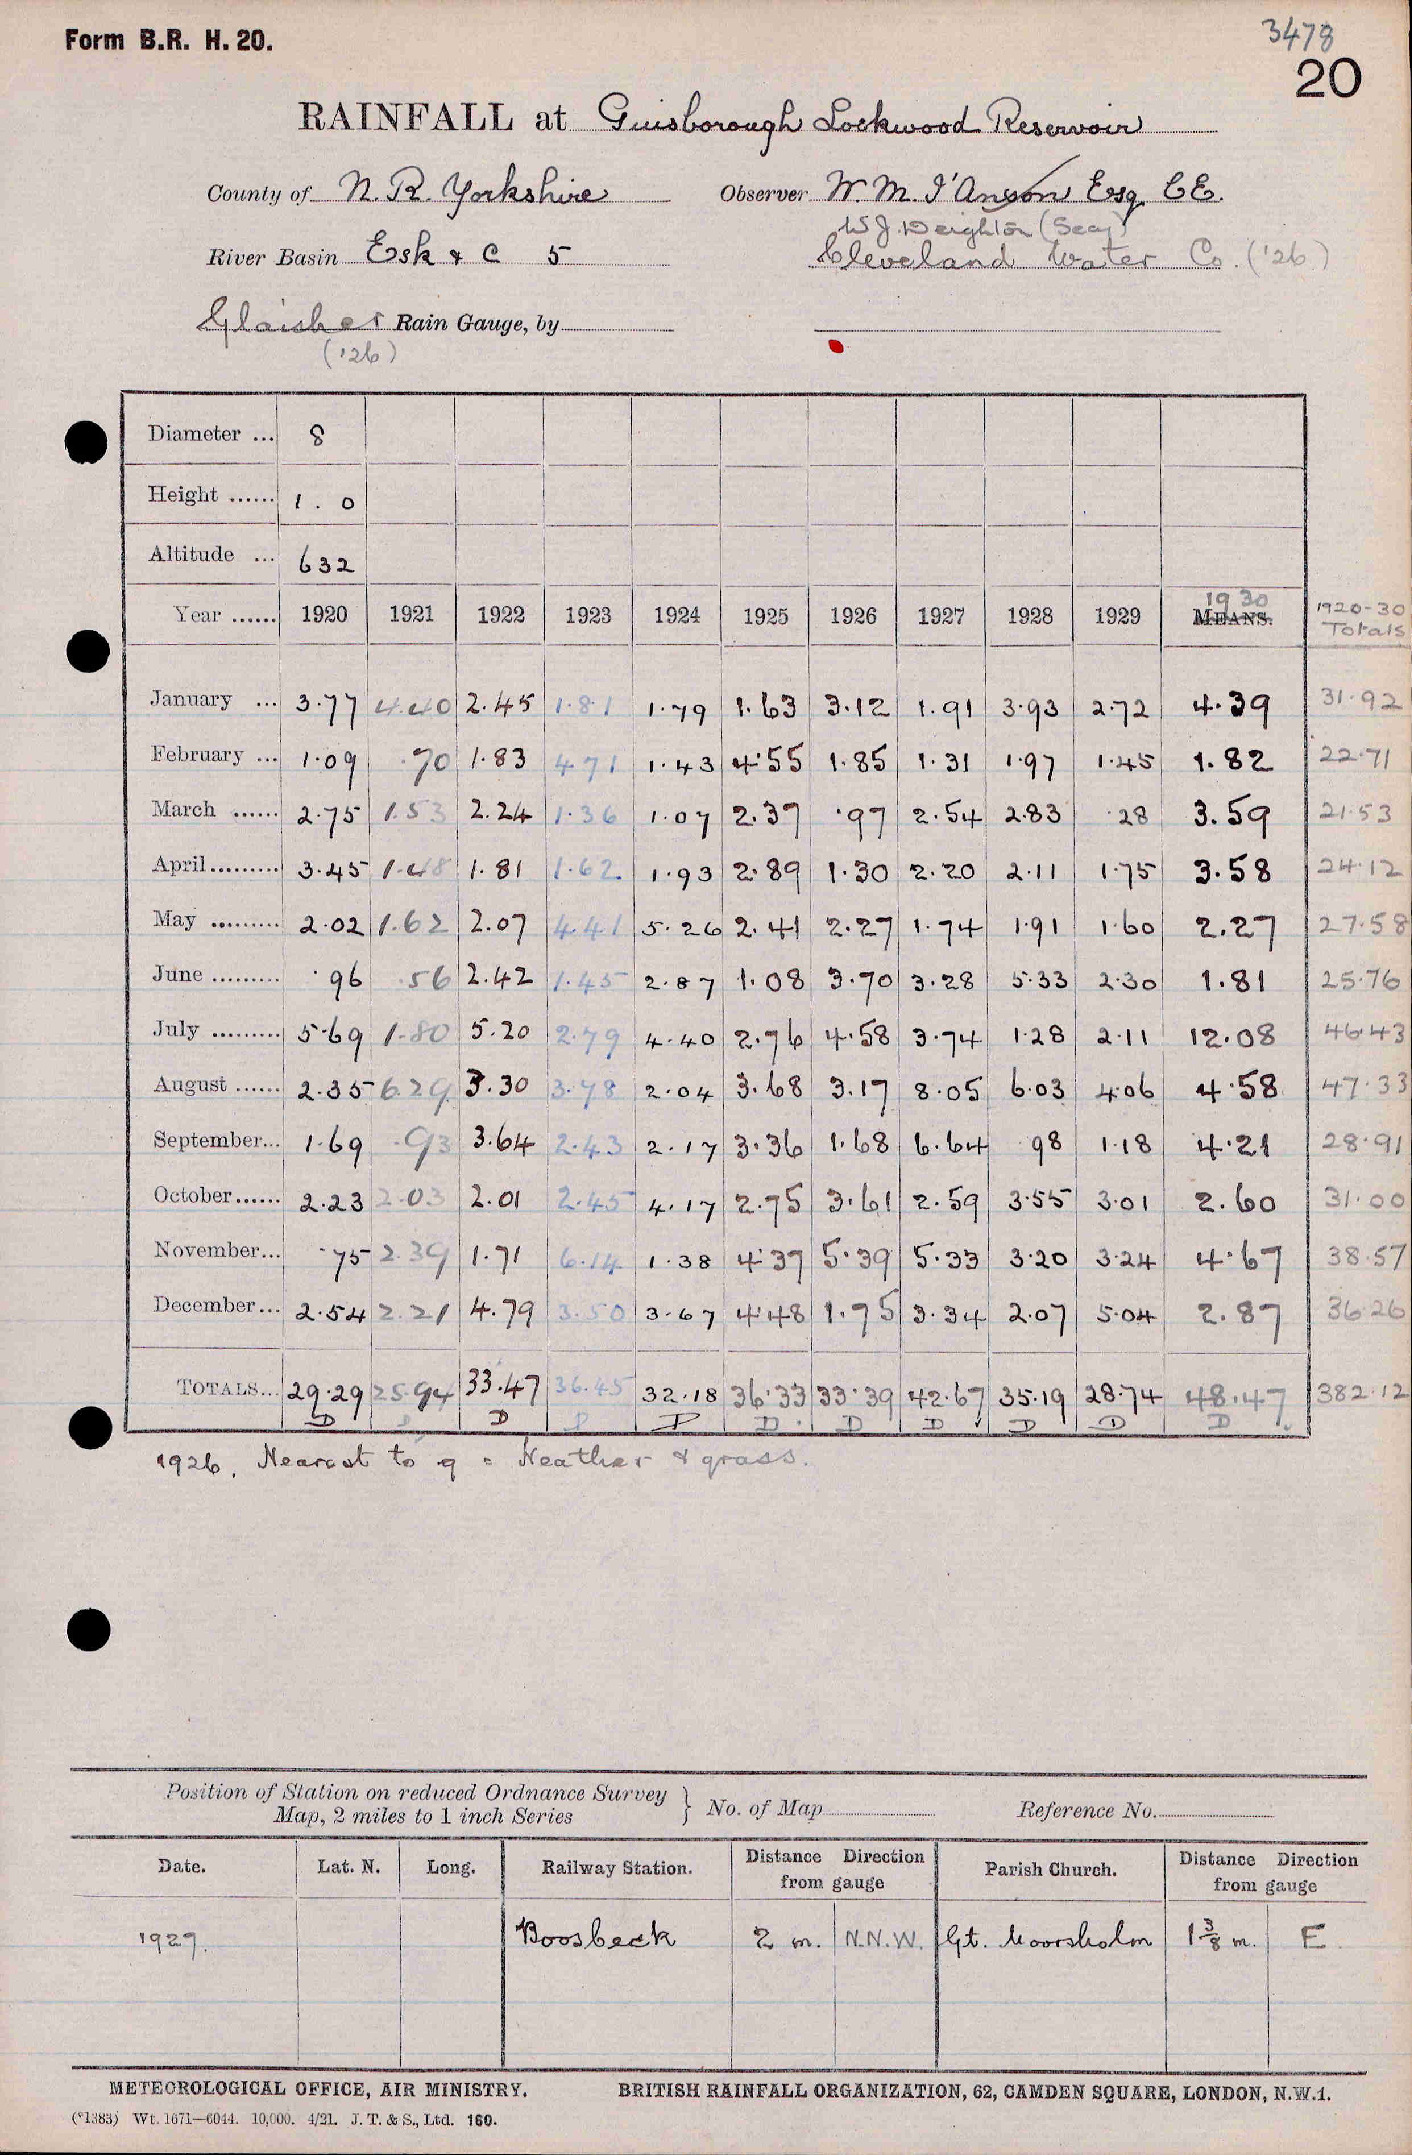 Form B.R. H. 20.
3478
20
RAINFALL at Guisborough Lockwood Reservoir
County of N. R. Yorkshire Observer W. M. I'Anson Esq CE.
W J. Deighton (Secy)
River Basin Esk & C 5 Cleveland Water Co. ('26)
Glaisher Rain Gauge, by
('26)
Diameter ... 8
Height ...... 1 . 0
Altitude ... 632
Year ...... 1920 1921 1922 1923 1924 1925 1926 1927 1928 1929 MEANS. 1930 1920-30 Totals
January ... 3.77 4.40 2.45 1.81 1.79 1.63 3.12 1.91 3.93 2.72 4.39 31.92
February ... 1.09 .70 1.83 4.71 1.43 4.55 1.85 1.31 1.97 1.45 1.82 22.71
March ...... 2.75 1.53 2.24 1.36 1.07 2.37 .97 2.54 2.83 .28 3.59 21.53
April......... 3.45 1.48 1.81 1.62 1.93 2.89 1.30 2.20 2.11 1.75 3.58 24.12
May ......... 2.02 1.62 2.07 4.41 5.26 2.41 2.27 1.74 1.91 1.60 2.27 27.58
June ......... .96 .56 2.42 1.45 2.87 1.08 3.70 3.28 5.33 2.30 1.81 25.76
July ......... 5.69 1.80 5.20 2.79 4.40 2.76 4.58 3.74 1.28 2.11 12.08 46.43
August ...... 2.35 6.29 3.30 3.78 2.04 3.68 3.17 8.05 6.03 4.06 4.58 47.33
September... 1.69 .93 3.64 2.43 2.17 3.36 1.68 6.64 .98 1.18 4.21 28.91
October...... 2.23 2.03 2.01 2.45 4.17 2.75 3.61 2.59 3.55 3.01 2.60 31.00
November... .75 2.39 1.71 6.14 1.38 4.37 5.39 5.33 3.20 3.24 4.67 38.57
December... 2.54 2.21 4.79 3.50 3.67 4.48 1.75 3.34 2.07 5.04 2.87 36.26
TOTALS... 29.29 25.94 33.47 36.45 32.18 36.33 33.39 42.67 35.19 28.74 48.47 382.12
D D D D D D D D D D D
1926. Nearest to g = Heather & grass.
Position of Station on reduced Ordnance Survey
Map, 2 miles to 1 inch Series } No. of Map Reference No.
Date. Lat. N. Long. Railway Station. Distance Direction from gauge Parish Church. Distance Direction from gauge
1927. Boosbeck 2 m. N.N.W. Gt. Moorsholm 1 3/8 m. E
METEOROLOGICAL OFFICE, AIR MINISTRY. BRITISH RAINFALL ORGANIZATION, 62, CAMDEN SQUARE, LONDON, N.W.1.
(*1383) Wt. 1671—6044. 10,000. 4/21. J. T. & S., Ltd. 160.